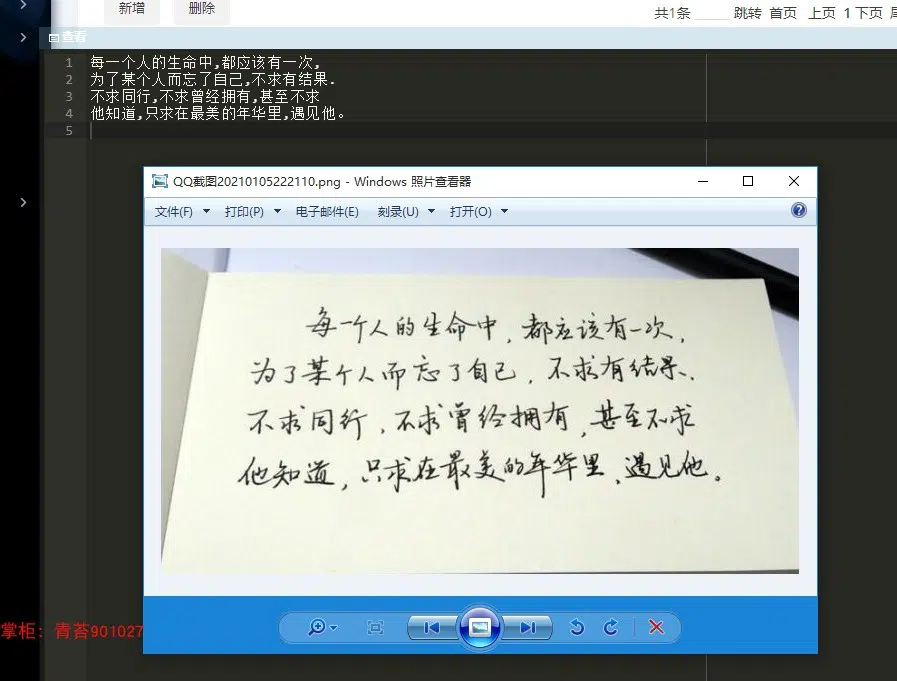 新增 删除 共1条 跳转 首页 上页 1 下页
查看
1 每一个人的生命中,都应该有一次,
2 为了某个人而忘了自己,不求有结果.
3 不求同行,不求曾经拥有,甚至不求
4 他知道,只求在最美的年华里,遇见他。
5
QQ截图20210105222110.png - Windows 照片查看器
文件(F) 打印(P) 电子邮件(E) 刻录(U) 打开(O)
每一个人的生命中,都应该有一次,
为了某个人而忘了自己,不求有结果、.
不求同行,不求曾经拥有,甚至不求
他知道,只求在最美的年华里、遇见他。
掌柜: 青苔901027